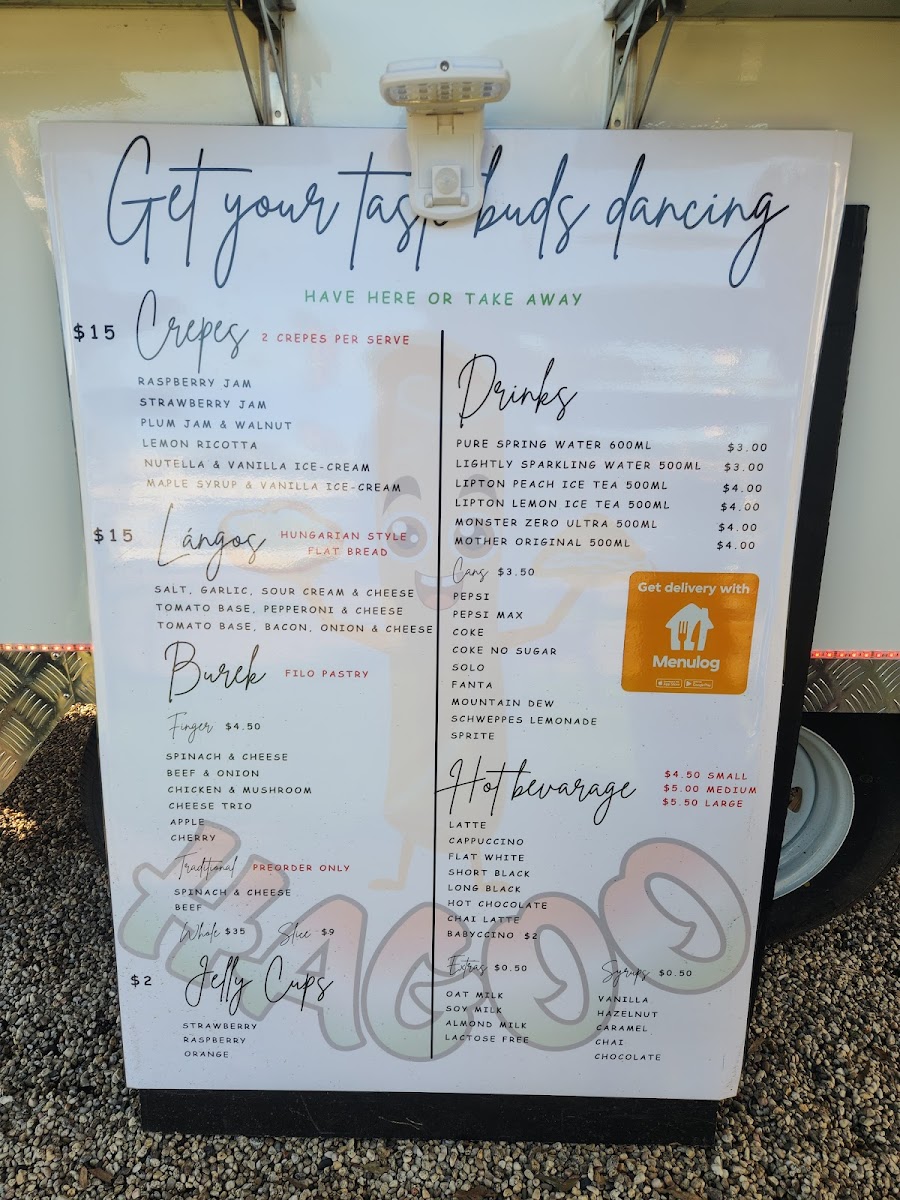 Get your taste buds dancing
HAVE HERE OR TAKE AWAY
$15 Crepes 2 CREPES PER SERVE
RASPBERRY JAM
STRAWBERRY JAM
PLUM JAM & WALNUT
LEMON RICOTTA
NUTELLA & VANILLA ICE-CREAM
MAPLE SYRUP & VANILLA ICE-CREAM
$15 Lángos HUNGARIAN STYLE
FLAT BREAD
SALT, GARLIC, SOUR CREAM & CHEESE
TOMATO BASE, PEPPERONI & CHEESE
TOMATO BASE, BACON, ONION & CHEESE
Burek FILO PASTRY
Finger $4.50
SPINACH & CHEESE
BEEF & ONION
CHICKEN & MUSHROOM
CHEESE TRIO
APPLE
CHERRY
Traditional PREORDER ONLY
SPINACH & CHEESE
BEEF
Whole $35 Slice $9
$2 Jelly Cups
STRAWBERRY
RASPBERRY
ORANGE
Drinks
PURE SPRING WATER 600ML $3.00
LIGHTLY SPARKLING WATER 500ML $3.00
LIPTON PEACH ICE TEA 500ML $4.00
LIPTON LEMON ICE TEA 500ML $4.00
MONSTER ZERO ULTRA 500ML $4.00
MOTHER ORIGINAL 500ML $4.00
Cans $3.50
PEPSI
PEPSI MAX
COKE
COKE NO SUGAR
SOLO
FANTA
MOUNTAIN DEW
SCHWEPPES LEMONADE
SPRITE
Get delivery with
Menulog
Hot bevarage
$4.50 SMALL
$5.00 MEDIUM
$5.50 LARGE
LATTE
CAPPUCCINO
FLAT WHITE
SHORT BLACK
LONG BLACK
HOT CHOCOLATE
CHAI LATTE
BABYCCINO $2
Extras $0.50
OAT MILK
SOY MILK
ALMOND MILK
LACTOSE FREE
Syrups $0.50
VANILLA
HAZELNUT
CARAMEL
CHAI
CHOCOLATE